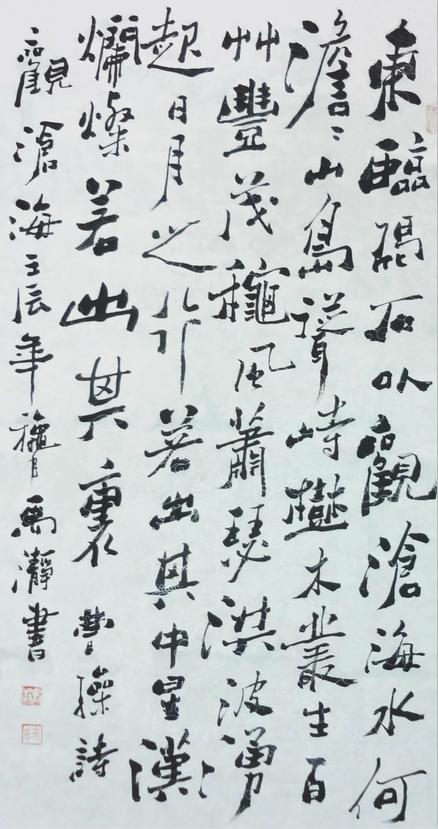 東臨碣石以觀滄海水何
澹〻山島聳峙樹木叢生百
艸豐茂穐風蕭瑟洪波湧
起日月之行若出其中星漢
爛燦若出其裏 曹操詩
觀滄海壬辰年穐月禹瀞書